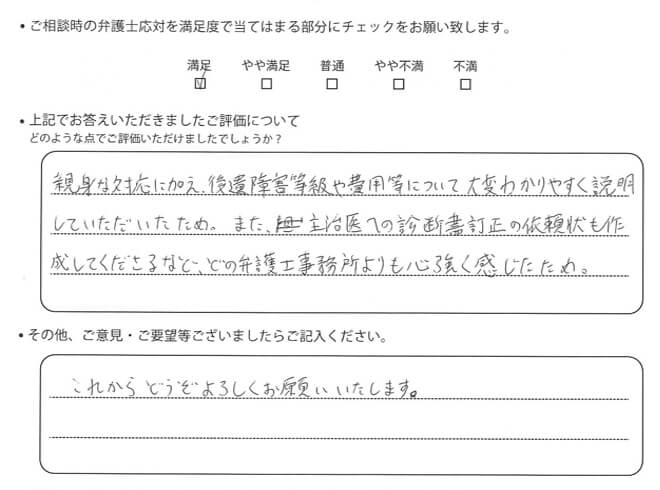 • ご相談時の弁護士応対を満足度で当てはまる部分にチェックをお願い致します。
満足 やや満足 普通 やや不満 不満
☑ □ □ □ □
• 上記でお答えいただきましたご評価について
どのような点でご評価いただけましたでしょうか？
親身な対応に加え、後遺障害等級や費用等について大変わかりやすく説明
していただいたため。また、主治医への診断書訂正の依頼状も作
成してくださるなど、どの弁護士事務所よりも心強く感じたため。
• その他、ご意見・ご要望等ございましたらご記入ください。
これからどうぞよろしくお願いいたします。